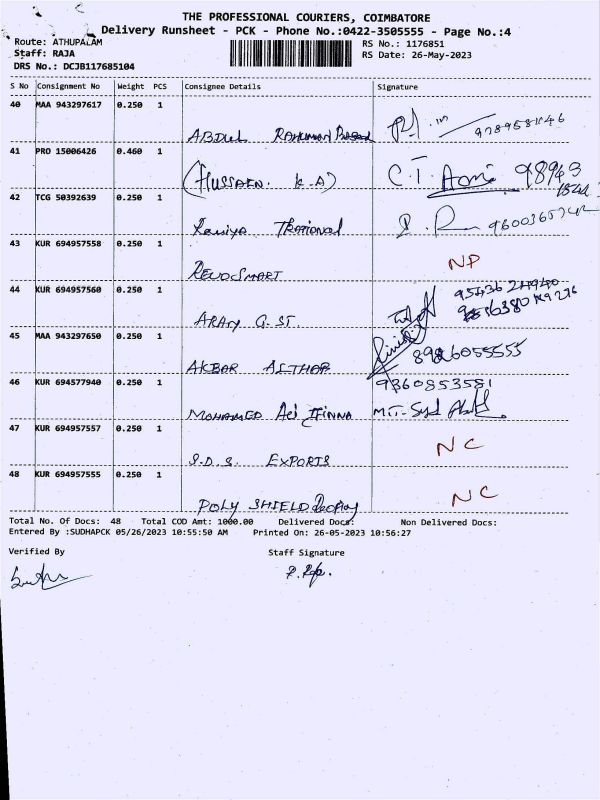 THE PROFESSIONAL COURIERS, COIMBATORE
Delivery Runsheet - PCK - Phone No.:0422-3505555 - Page No.:4
Route: ATHUPALAM
RS No.: 1176851
Staff: RAJA
RS Date: 26-May-2023
DRS No.: DCJB117685104
S No Consignment No Weight PCS Consignee Details Signature
40 MAA 943297617 0.250 1
ABDUL RAHUMAN 9789581146
41 PRO 15006426 0.460 1
(HUSSAEN. K.A) C.T. 98943
42 TCG 50392639 0.250 1
43 KUR 694957558 0.250 1
REVOSMART NP
44 KUR 694957560 0.250 1
G. ST.
45 MAA 943297650 0.250 1
AKBAR ALTHAF 8926055555
46 KUR 694577940 0.250 1 9360853581
MOHAMED Ali
47 KUR 694957557 0.250 1
S.D.S. EXPORTS NC
48 KUR 694957555 0.250 1
POLY SHIELD NC
Total No. Of Docs: 48 Total COD Amt: 1000.00 Delivered Docs: Non Delivered Docs:
Entered By :SUDHAPCK 05/26/2023 10:55:50 AM Printed On: 26-05-2023 10:56:27
Verified By Staff Signature